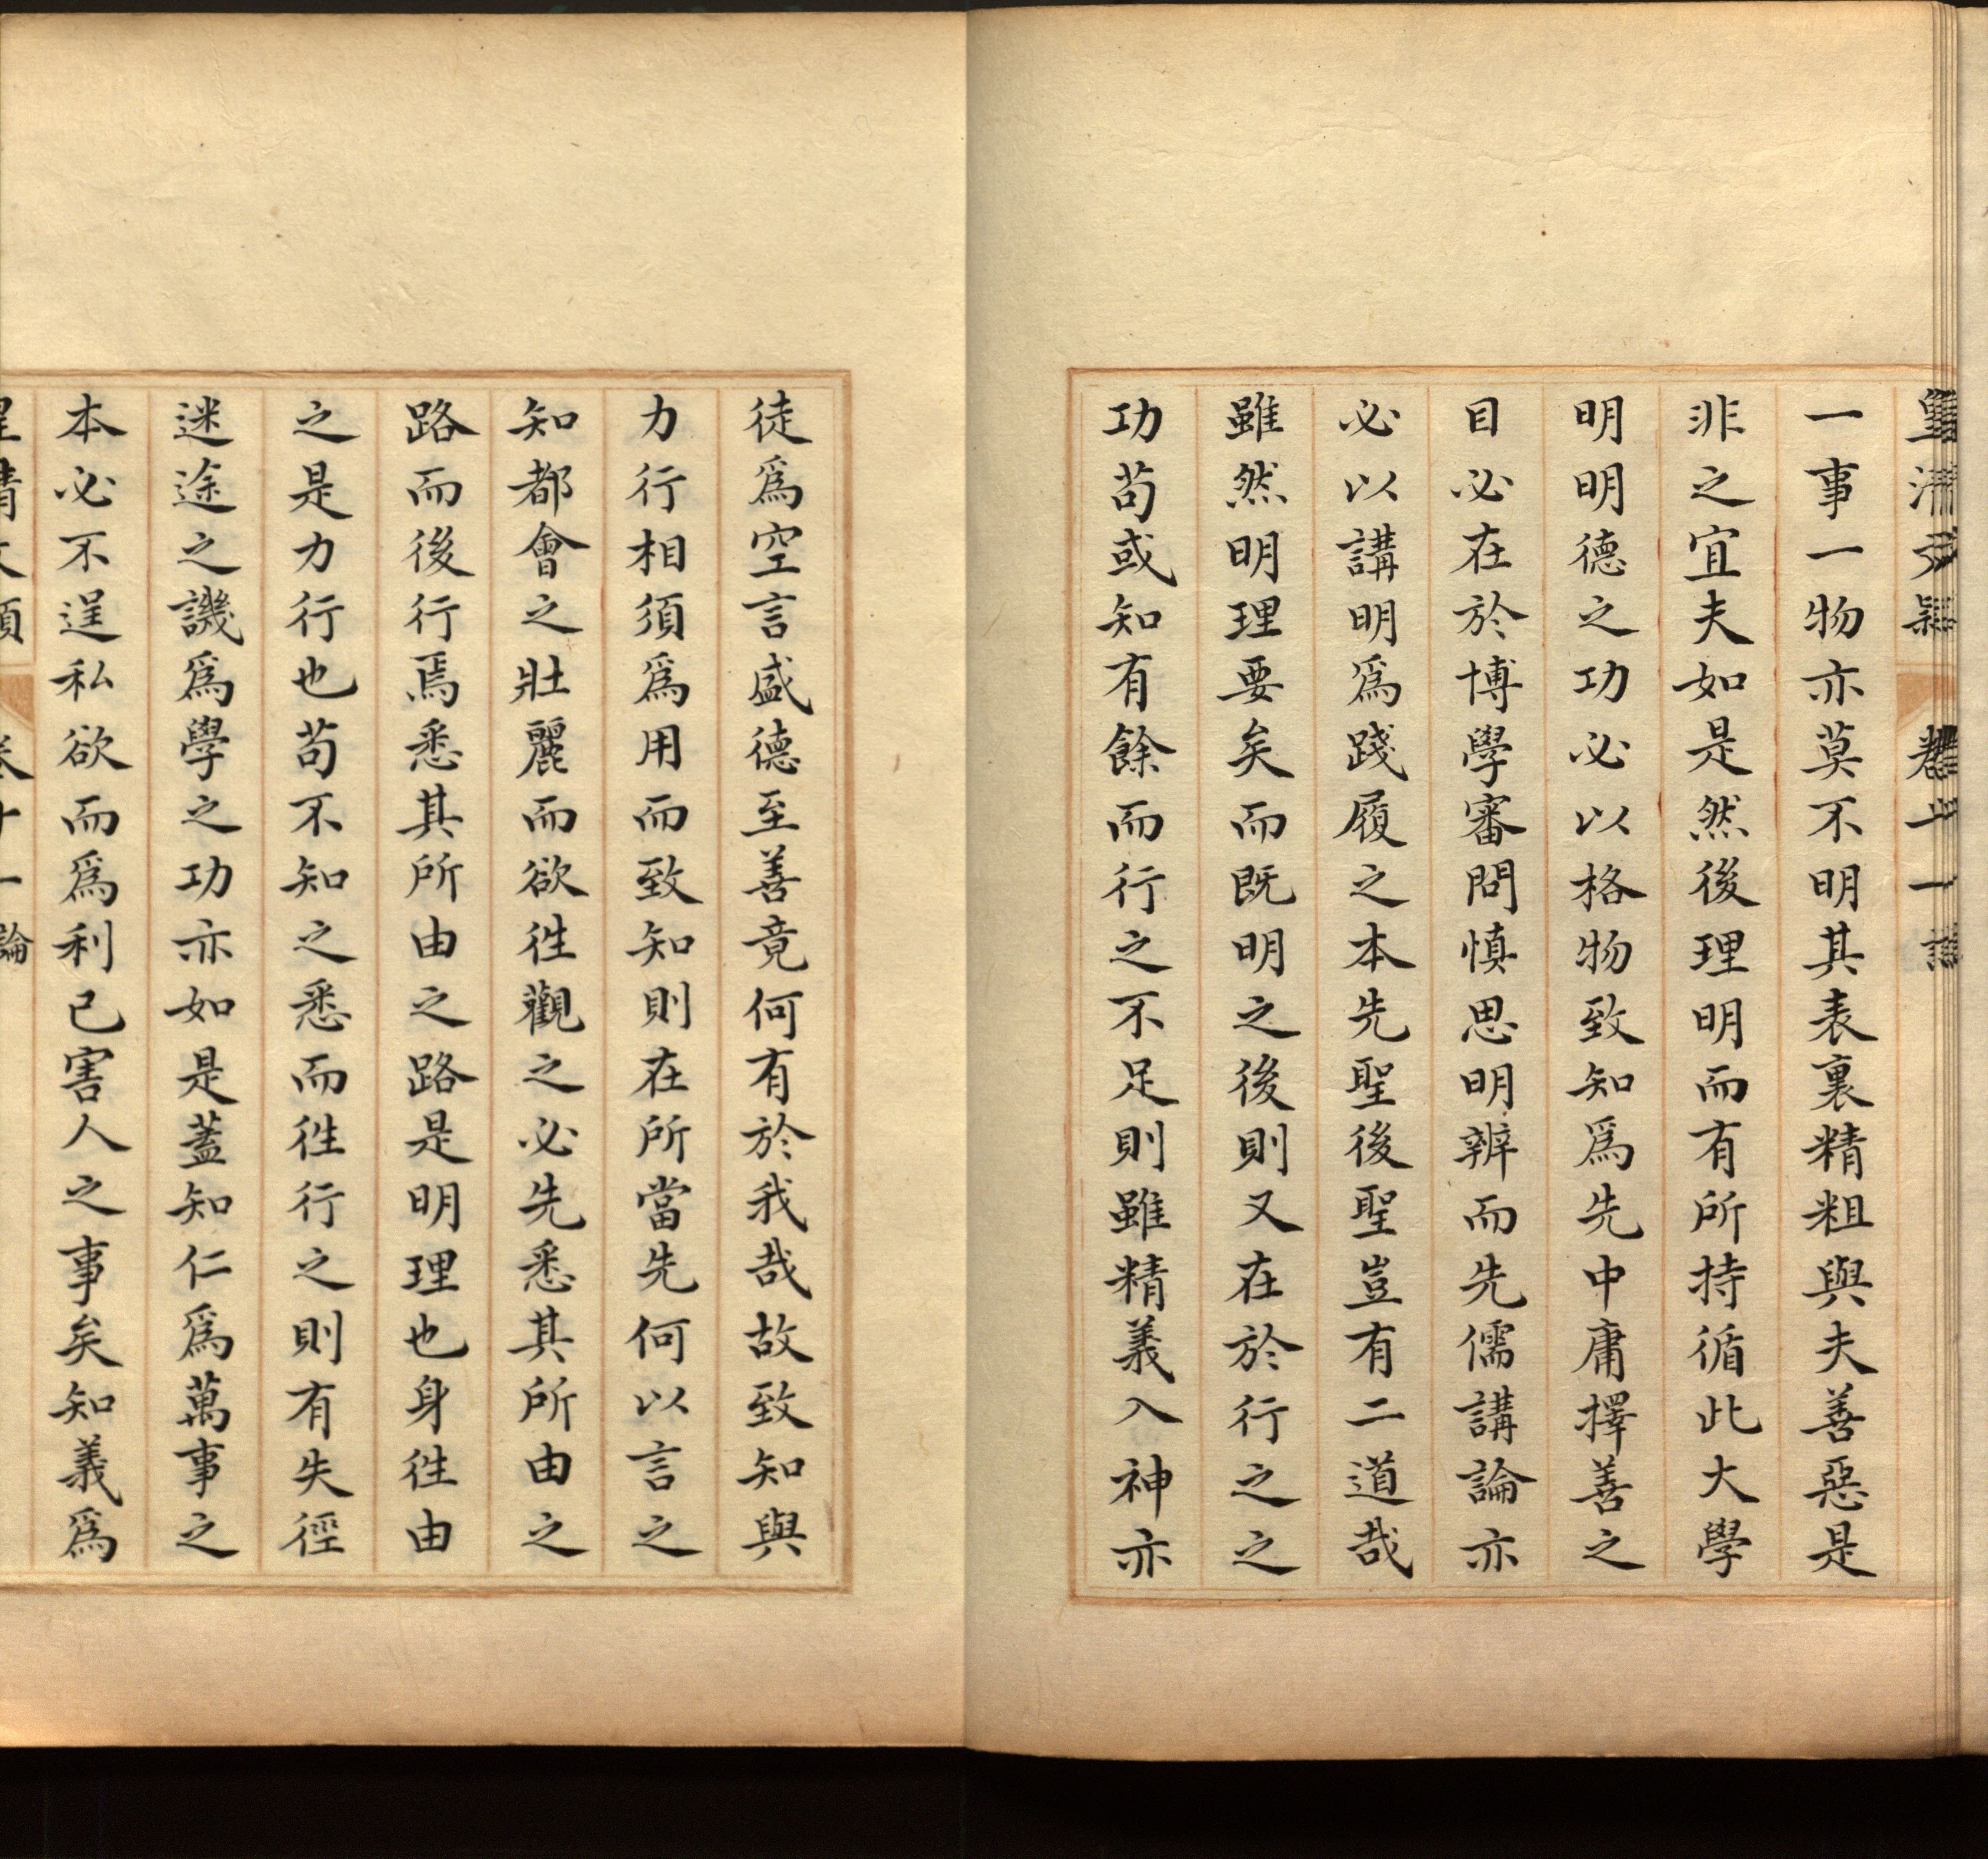 皇清文穎 卷十一 論
一事一物亦莫不明其表裏精粗與夫善惡是
非之宜夫如是然後理明而有所持循此大學
明明德之功必以格物致知爲先中庸擇善之
目必在於博學審問慎思明辨而先儒講論亦
必以講明爲踐履之本先聖後聖豈有二道哉
雖然明理要矣而既明之後則又在於行之之
功苟或知有餘而行之不足則雖精義入神亦
徒爲空言盛德至善竟何有於我哉故致知與
力行相須爲用而致知則在所當先何以言之
知都會之壯麗而欲徃觀之必先悉其所由之
路而後行焉悉其所由之路是明理也身徃由
之是力行也苟不知之悉而徃行之則有失徑
迷途之譏爲學之功亦如是蓋知仁爲萬事之
本必不逞私欲而爲利己害人之事矣知義爲
皇清文穎 卷十一 論